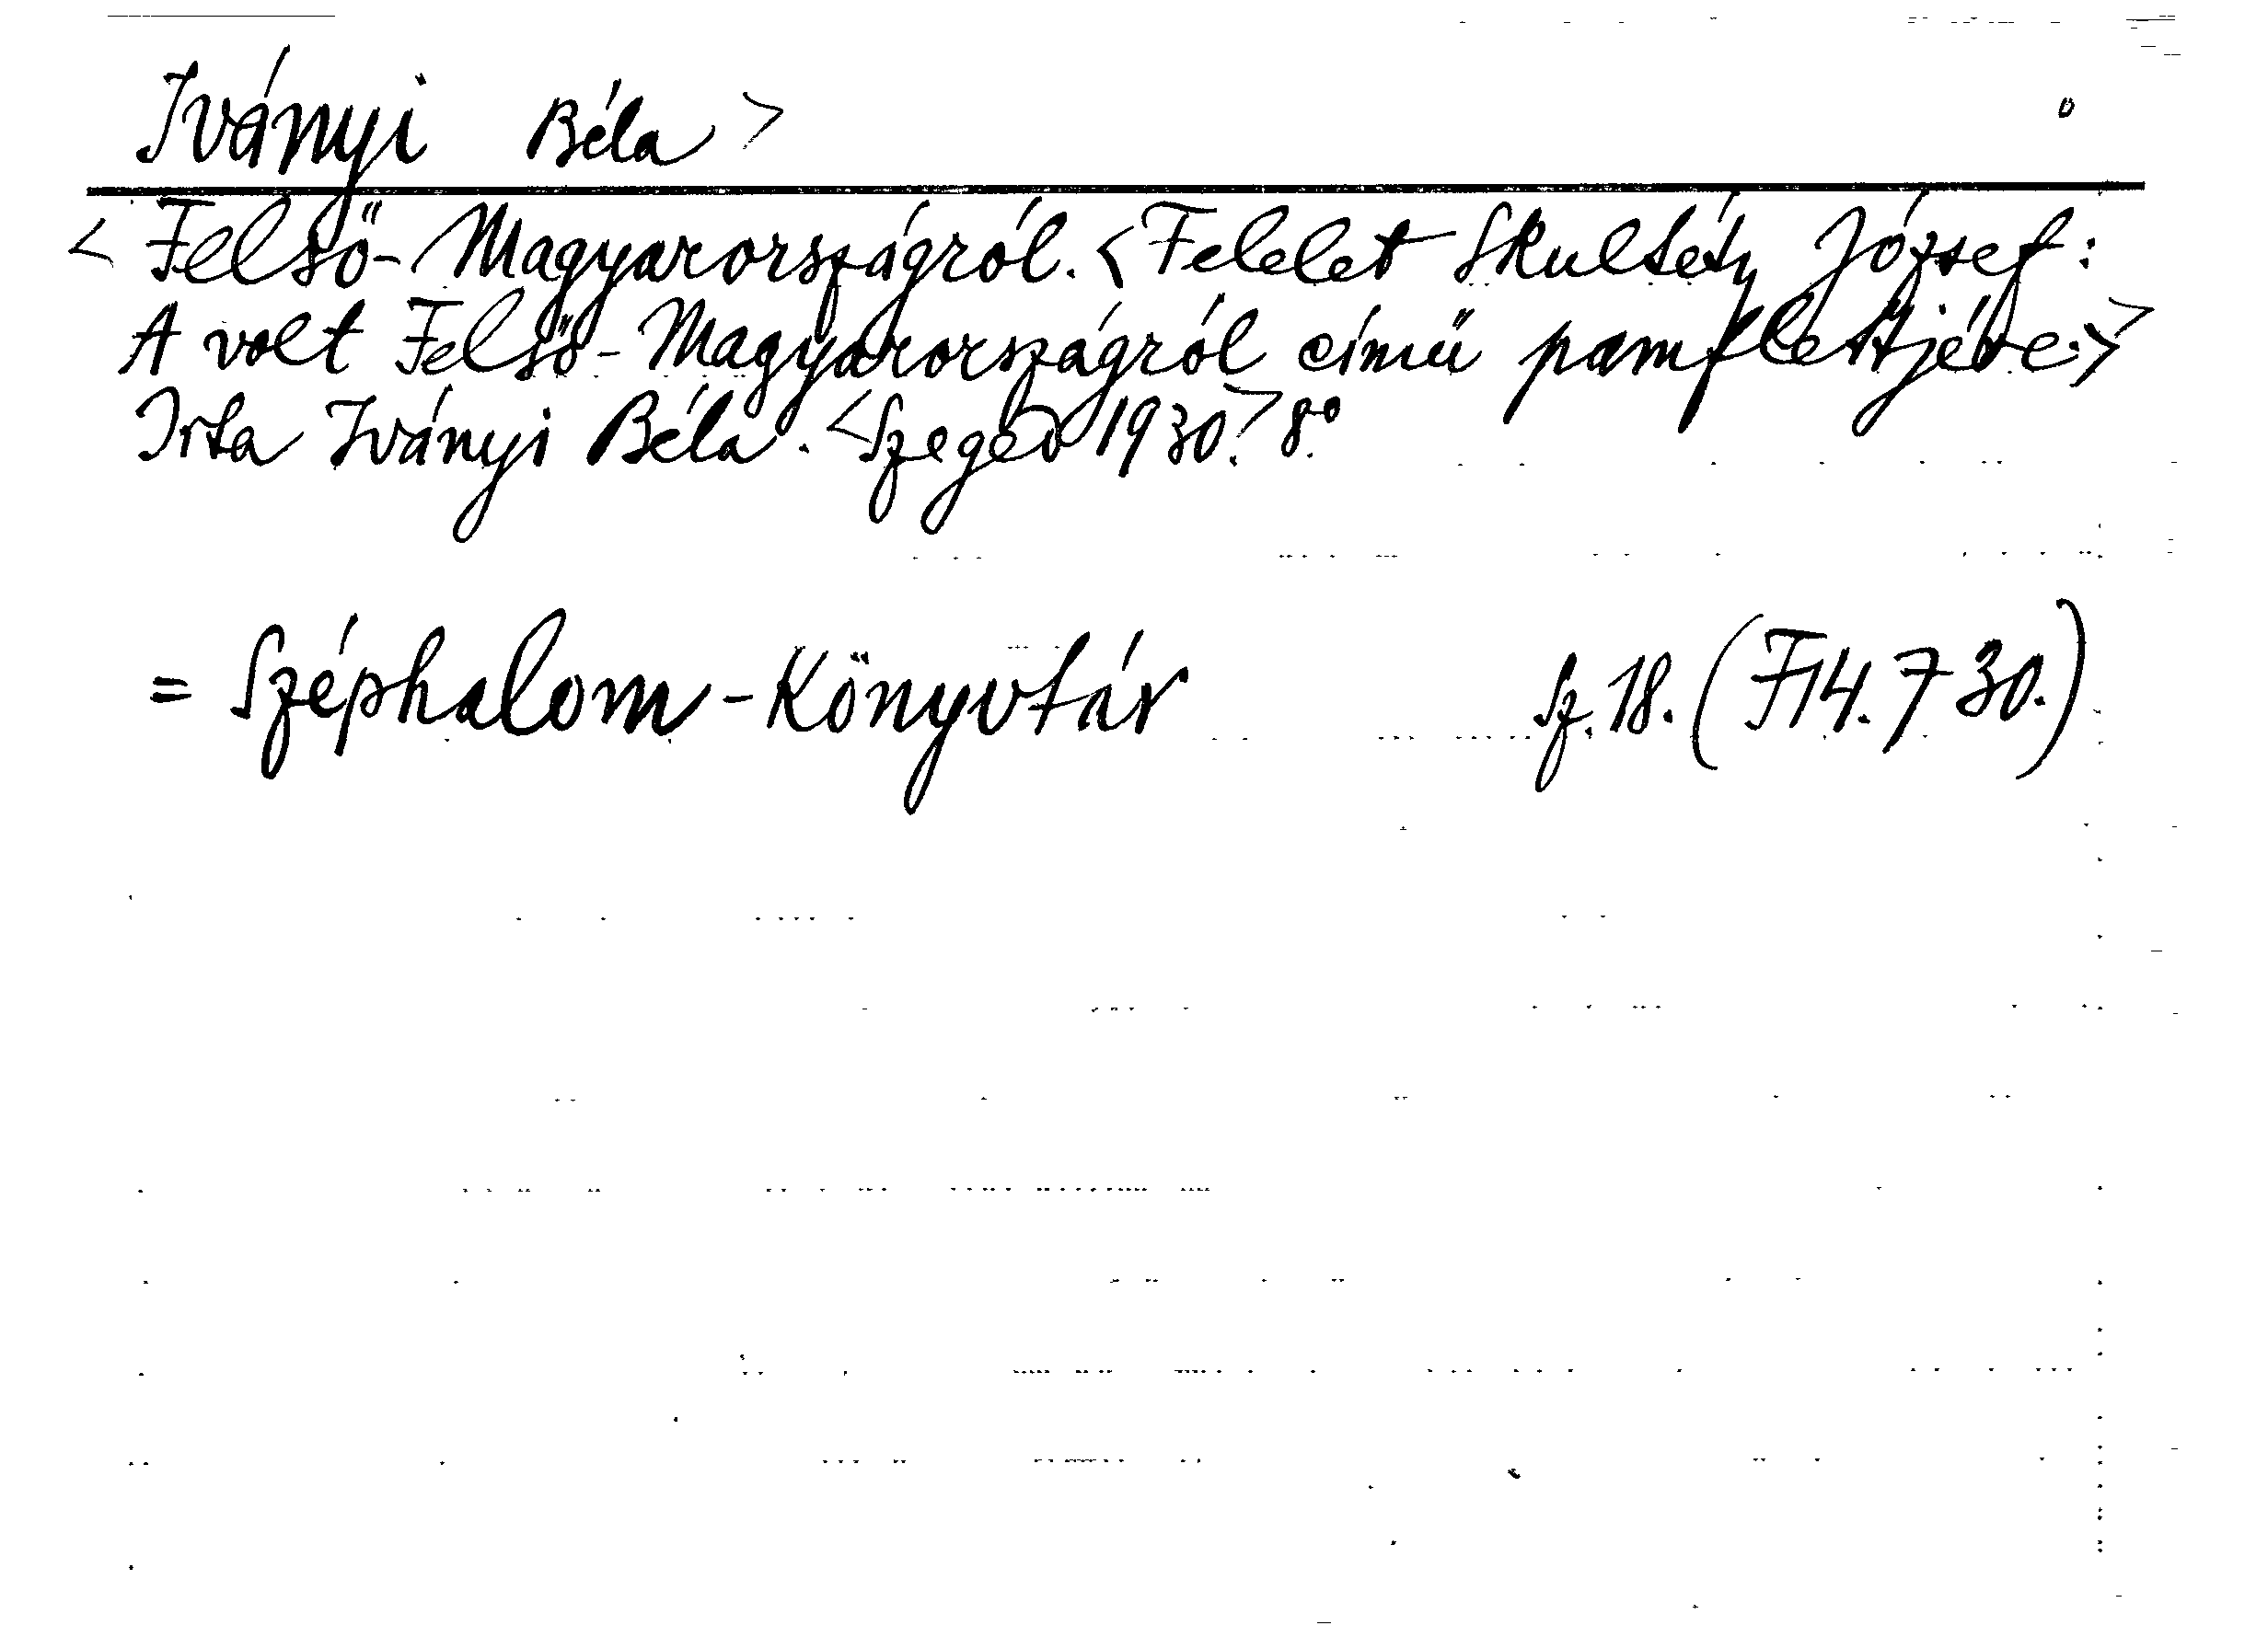 Iványi Béla >
< Felső-Magyarországról. < Felelet Skultéty József:
A volt Felső-Magyarországról című pamflettjére. >>
Irta Iványi Béla. < Szeged 1930. > 8°.
= Széphalom-Könyvtár sz. 18. (F14.730.)